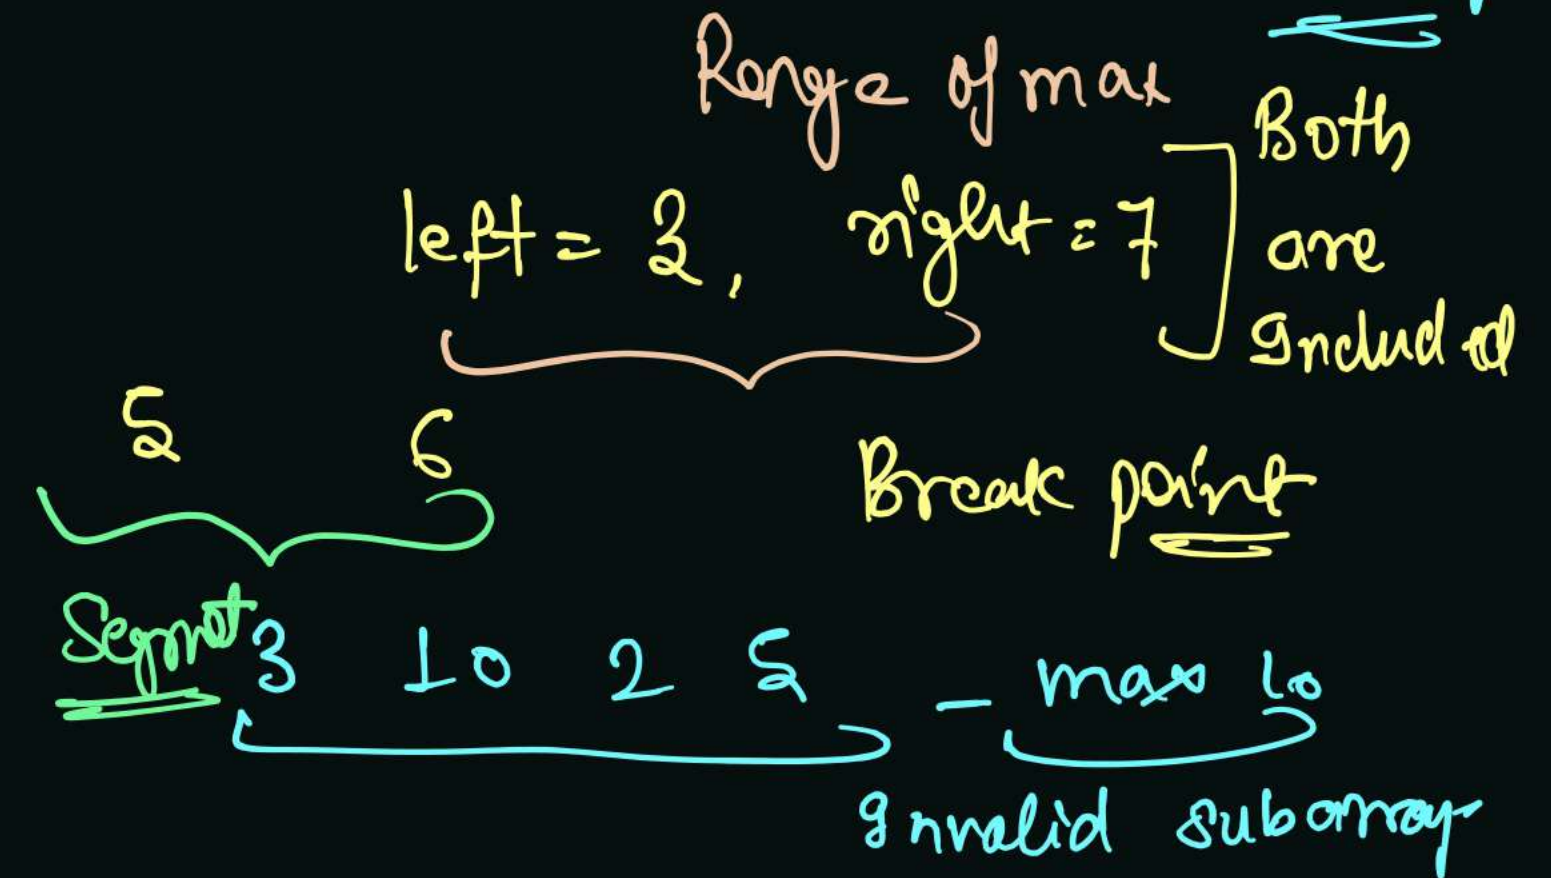 Range of max
Both
left = 3, right = 7
are
Included
5 6
Break point
Segment
3 10 2 5 - max 10
Invalid subarray